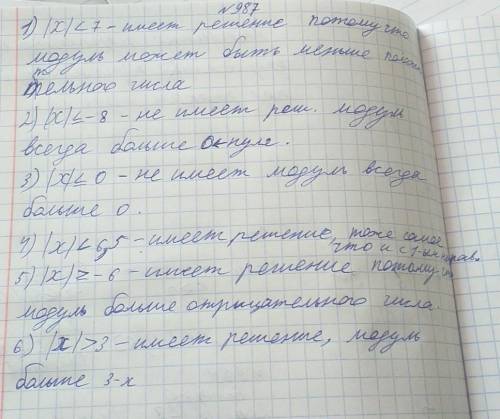 №987
1) |x| < 7 - имеет решение потому что
модуль может быть меньше положи
тельного числа
2) |x| ≤ -8 - не имеет реш. модуль
всегда больше нуля.
3) |x| ≤ 0 - не имеет модуль всегда
больше 0.
4) |x| < 6,5 - имеет решение, тоже самое
что и с 1-ым
5) |x| ≥ -6 - имеет решение потому что
модуль больше отрицательного числа.
6) |x| > 3 - имеет решение, модуль
больше 3-х